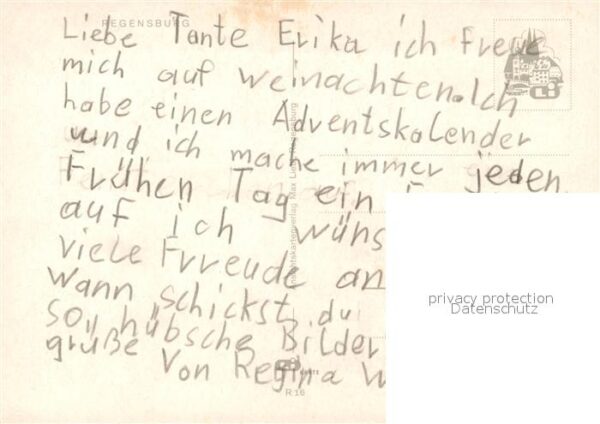 REGENSBURG
Liebe Tante Erika ich Freue
mich auf weinachten. Ich
habe einen Adventskalender
und ich mache immer jeden
Frühen Tag ein
auf ich wüns
viele Frreude an
wann schickst du
so hübsche Bilder
grüße
Von Regina W
R 16
privacy protection
Datenschutz